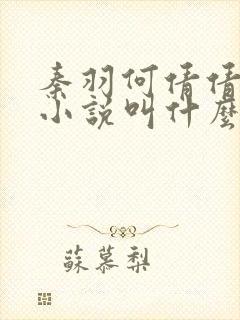 秦羽何倩倩
小說叫什麼
蘇慕梨